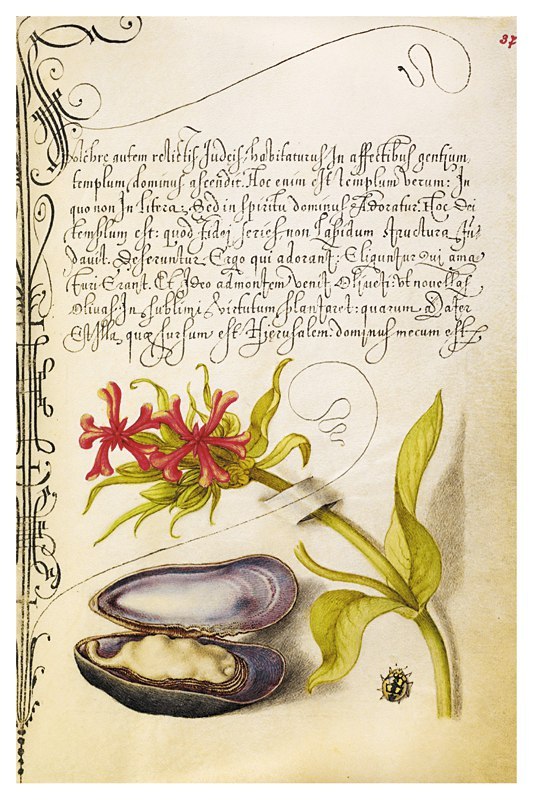 37
autem relictis Judeis habitaturus In affectibus gentium
templum dominus ascendit. Hoc enim est templum verum: In
quo non In litera, Sed in spiritu dominus Adoratur. Hoc Dei
templum est: quod fidei series non Lapidum structura fu-
davit. Deseruntur Ergo qui adorant: Eliguntur Qui ama
turi Erant. Et Ideo ad montem venit Oliveti: Vt novellas
Olivas In sublimi Virtutum plantaret: quarum Mater
Est Illa quæ sursum est Hierusalem: dominus mecum est